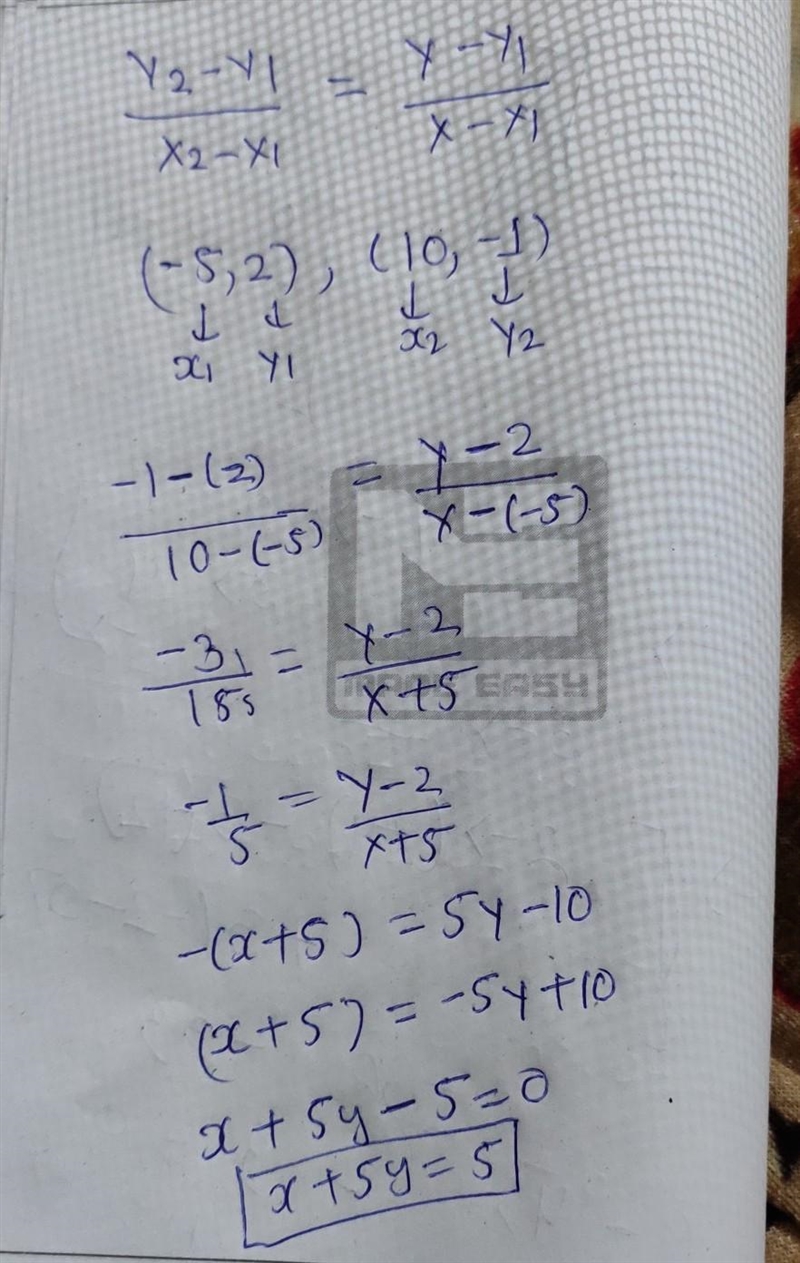 Y2-Y1 / X2-X1 = Y-Y1 / X-X1
(-5,2), (10,-1)
↓ ↓ ↓ ↓
x1 Y1 x2 Y2
-1-(2) / 10-(-5) = Y-2 / X-(-5)
-31 / 155 = Y-2 / X+5
-1/5 = Y-2 / X+5
-(x+5) = 5Y-10
(x+5) = -5Y+10
x+5y-5=0
x+5y=5
EASY